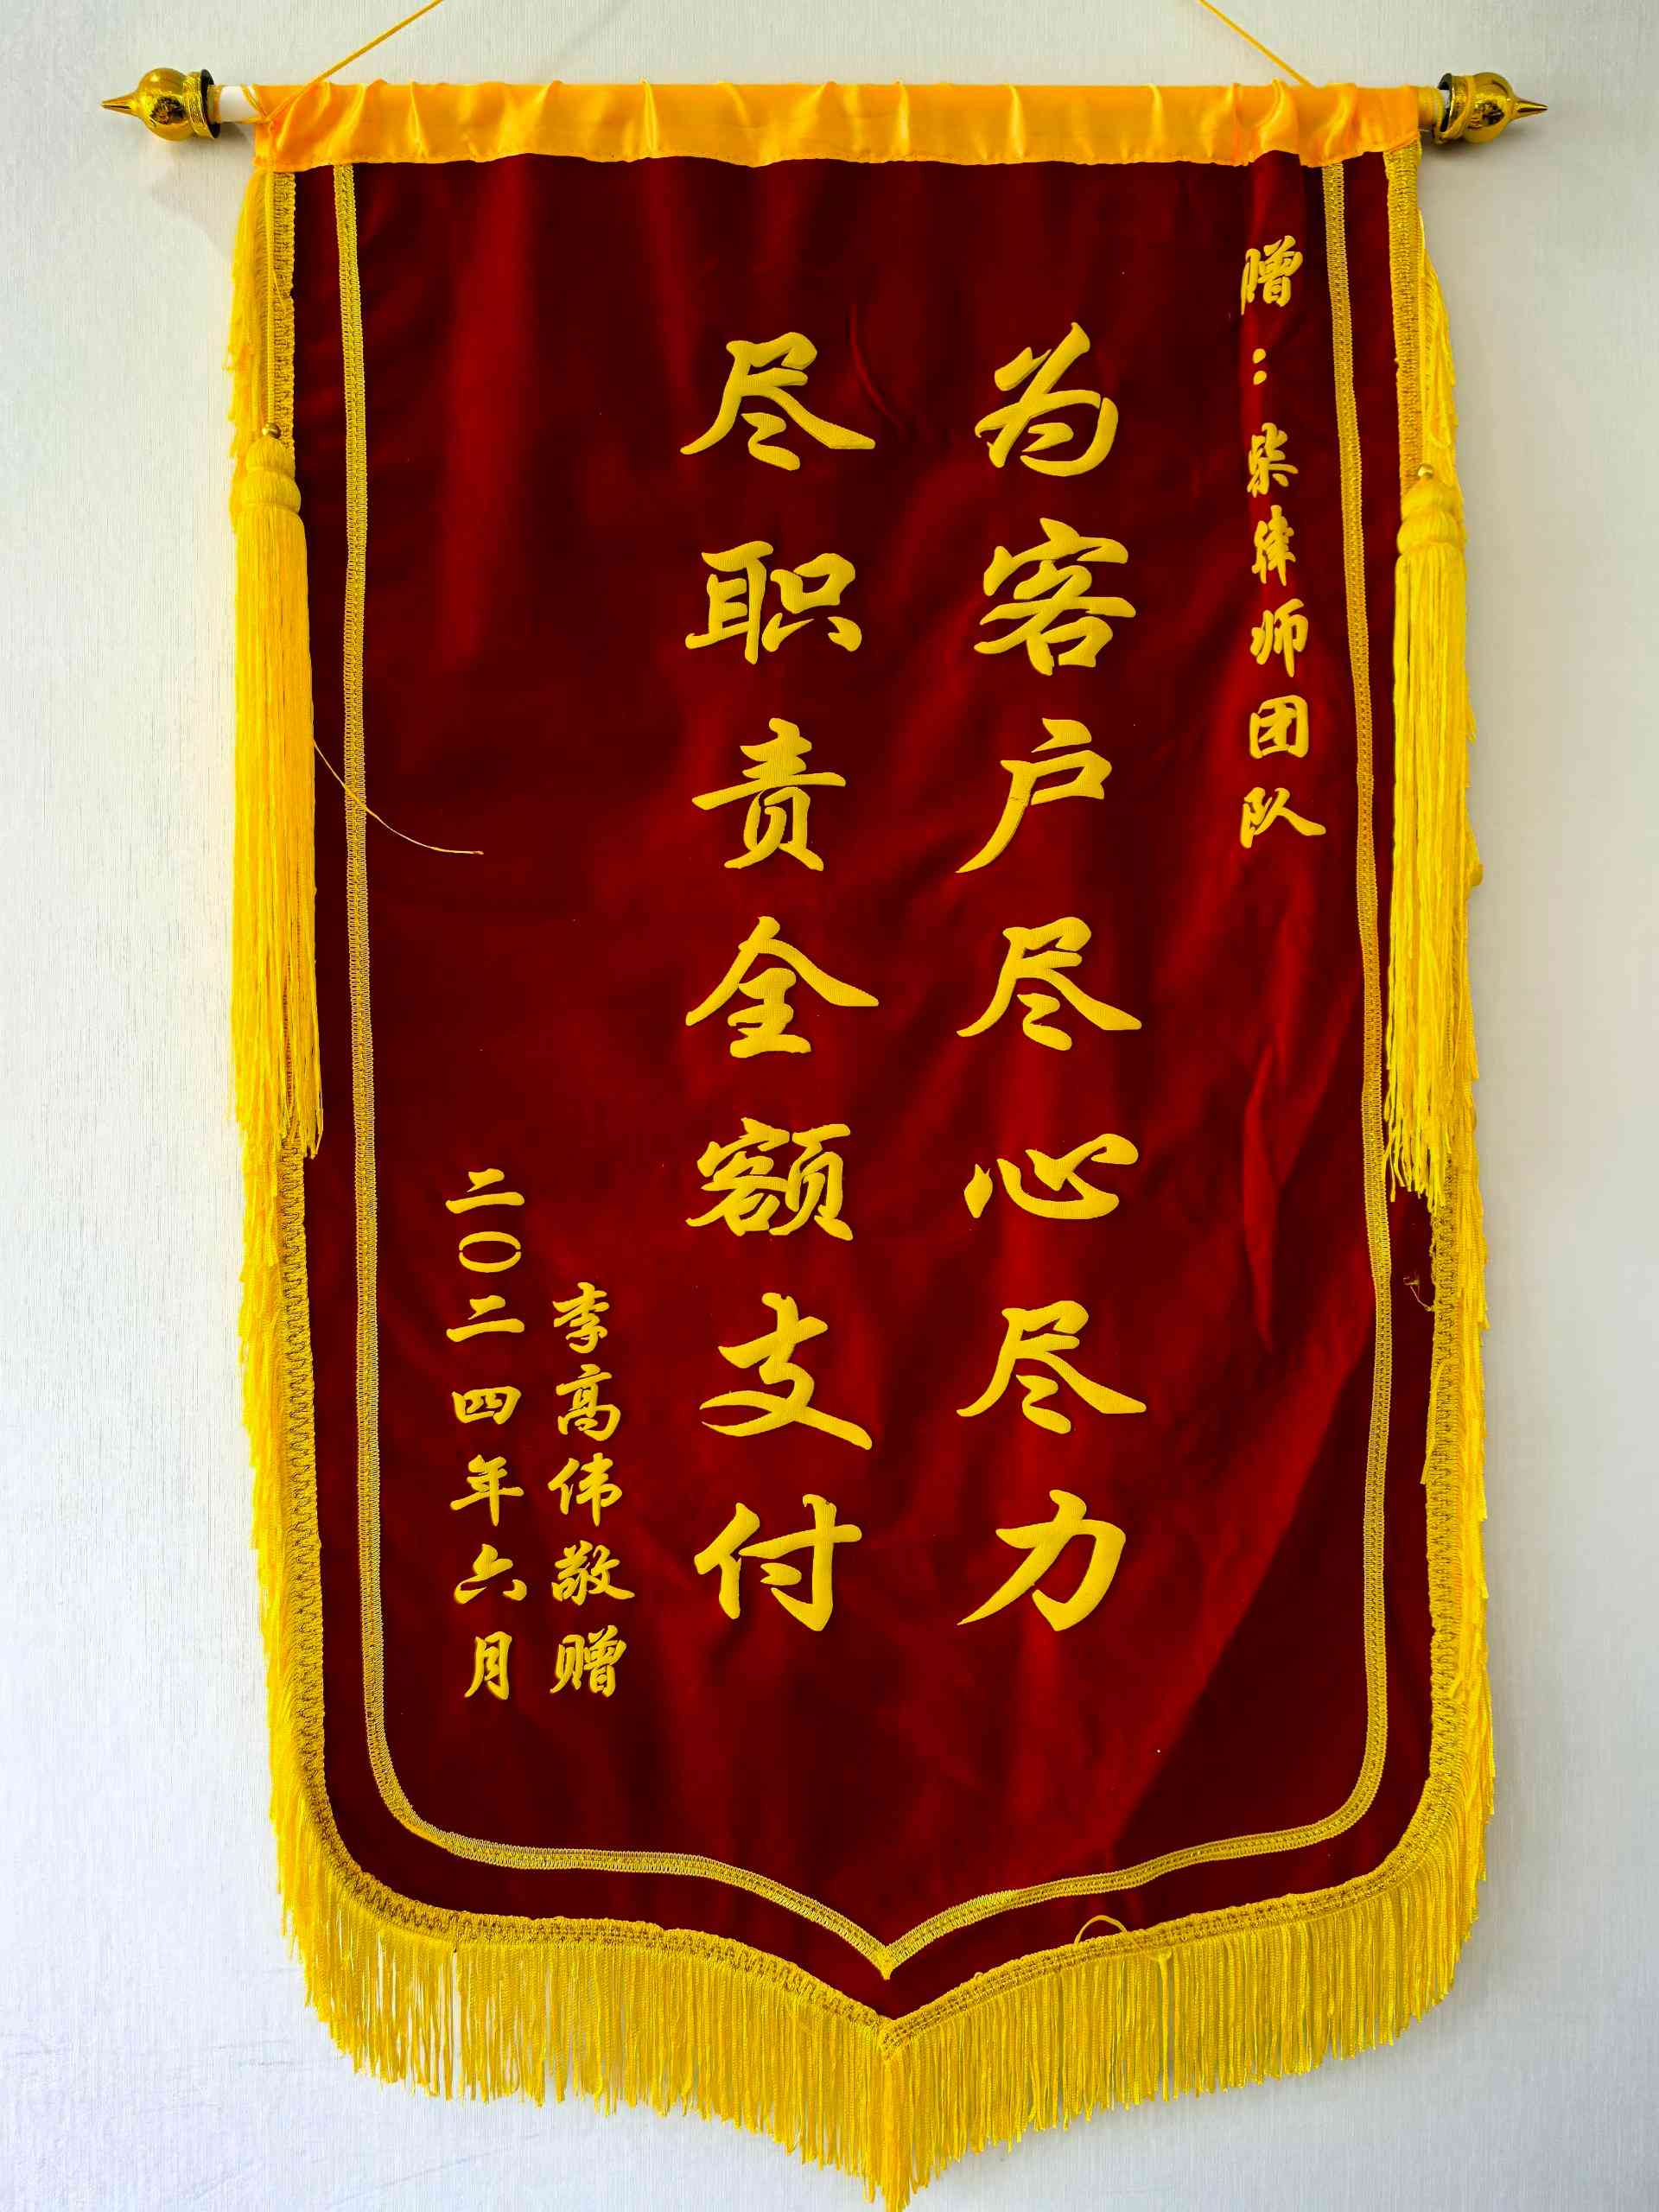 赠：柴律师团队
为客户尽心尽力
尽职责全额支付
李高伟敬赠
二〇二四年六月